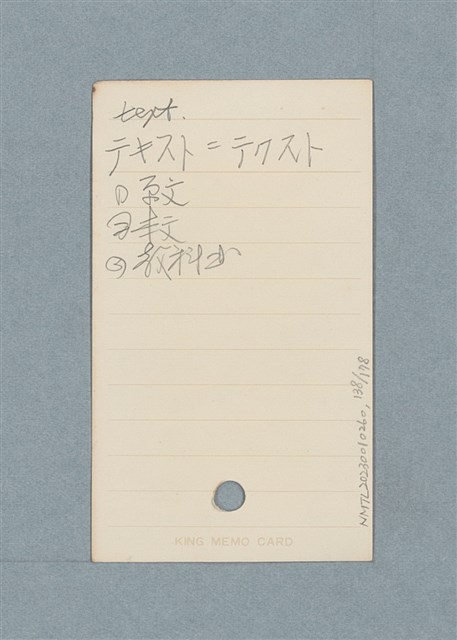 text.
テキスト=テクスト
① 原文
② 本文
③ 教科书
KING MEMO CARD
NMTL20230010260, 138/198